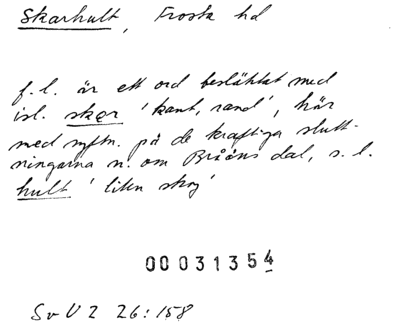 Skarhult, Frosta hd
f.l. är ett ord besläktat med
isl. skǫr 'kant, rand', här
med syftn. på de kraftiga slutt-
ningarna n. om Brååns dal, s. l.
hult 'liten skog'
00031354
SvU 2 26:158